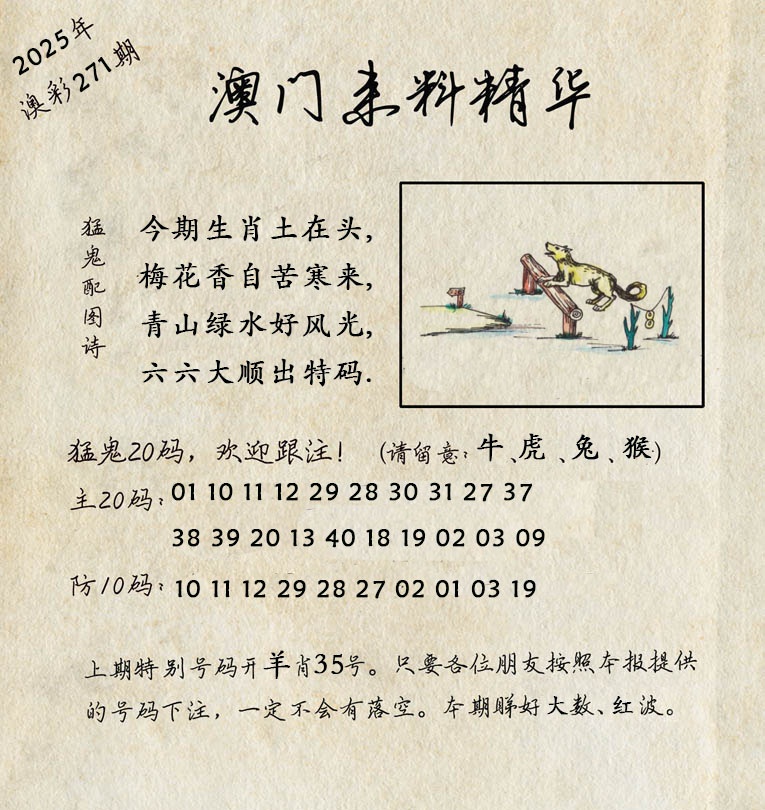 2025年
澳彩271期
澳门来料精华
猛鬼配图诗
今期生肖土在头,
梅花香自苦寒来,
青山绿水好风光,
六六大顺出特码.
猛鬼20码，欢迎跟注！ (请留意：牛、虎、兔、猴)
主20码：01 10 11 12 29 28 30 31 27 37
38 39 20 13 40 18 19 02 03 09
防10码：10 11 12 29 28 27 02 01 03 19
上期特别号码开羊肖35号。只要各位朋友按照本报提供
的号码下注，一定不会有落空。本期睇好大数、红波。